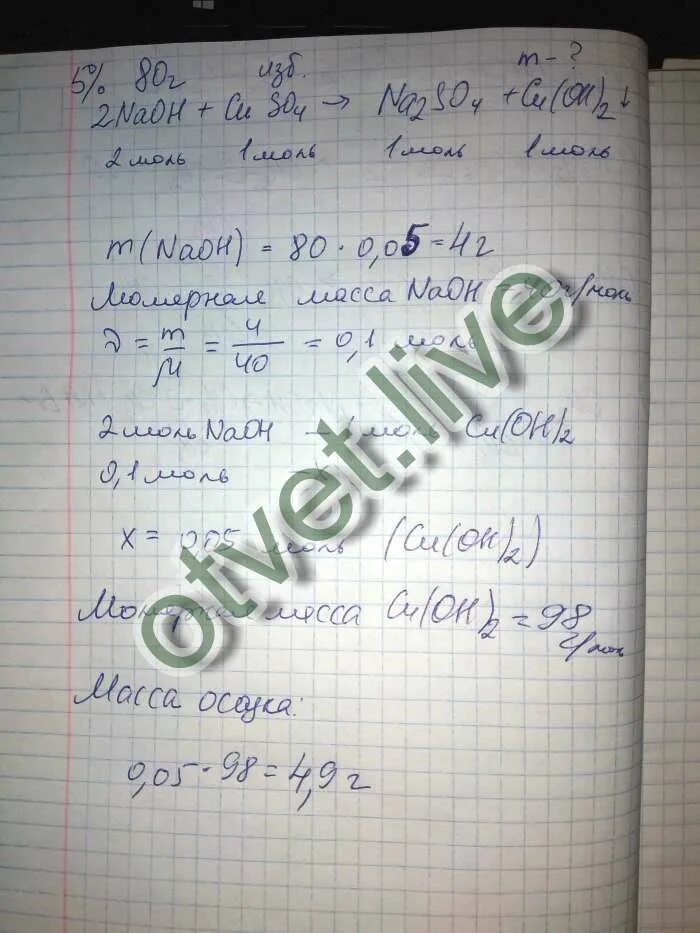 5% 80г изб. m-?
2NaOH + CuSO₄ → Na₂SO₄ + Cu(OH)₂↓
2 моль 1 моль 1 моль 1 моль
m(NaOH) = 80 · 0,05 = 4г
масса NaOH = 40 г/моль
ν = m/μ = 4/40 = 0,1 моль
2 моль NaOH – 1 моль Cu(OH)₂
0,1 моль
x = 0,05 моль (Cu(OH)₂)
масса Cu(OH)₂ = 98 г/моль
Масса осадка:
0,05 · 98 = 4,9 г
otvet.live